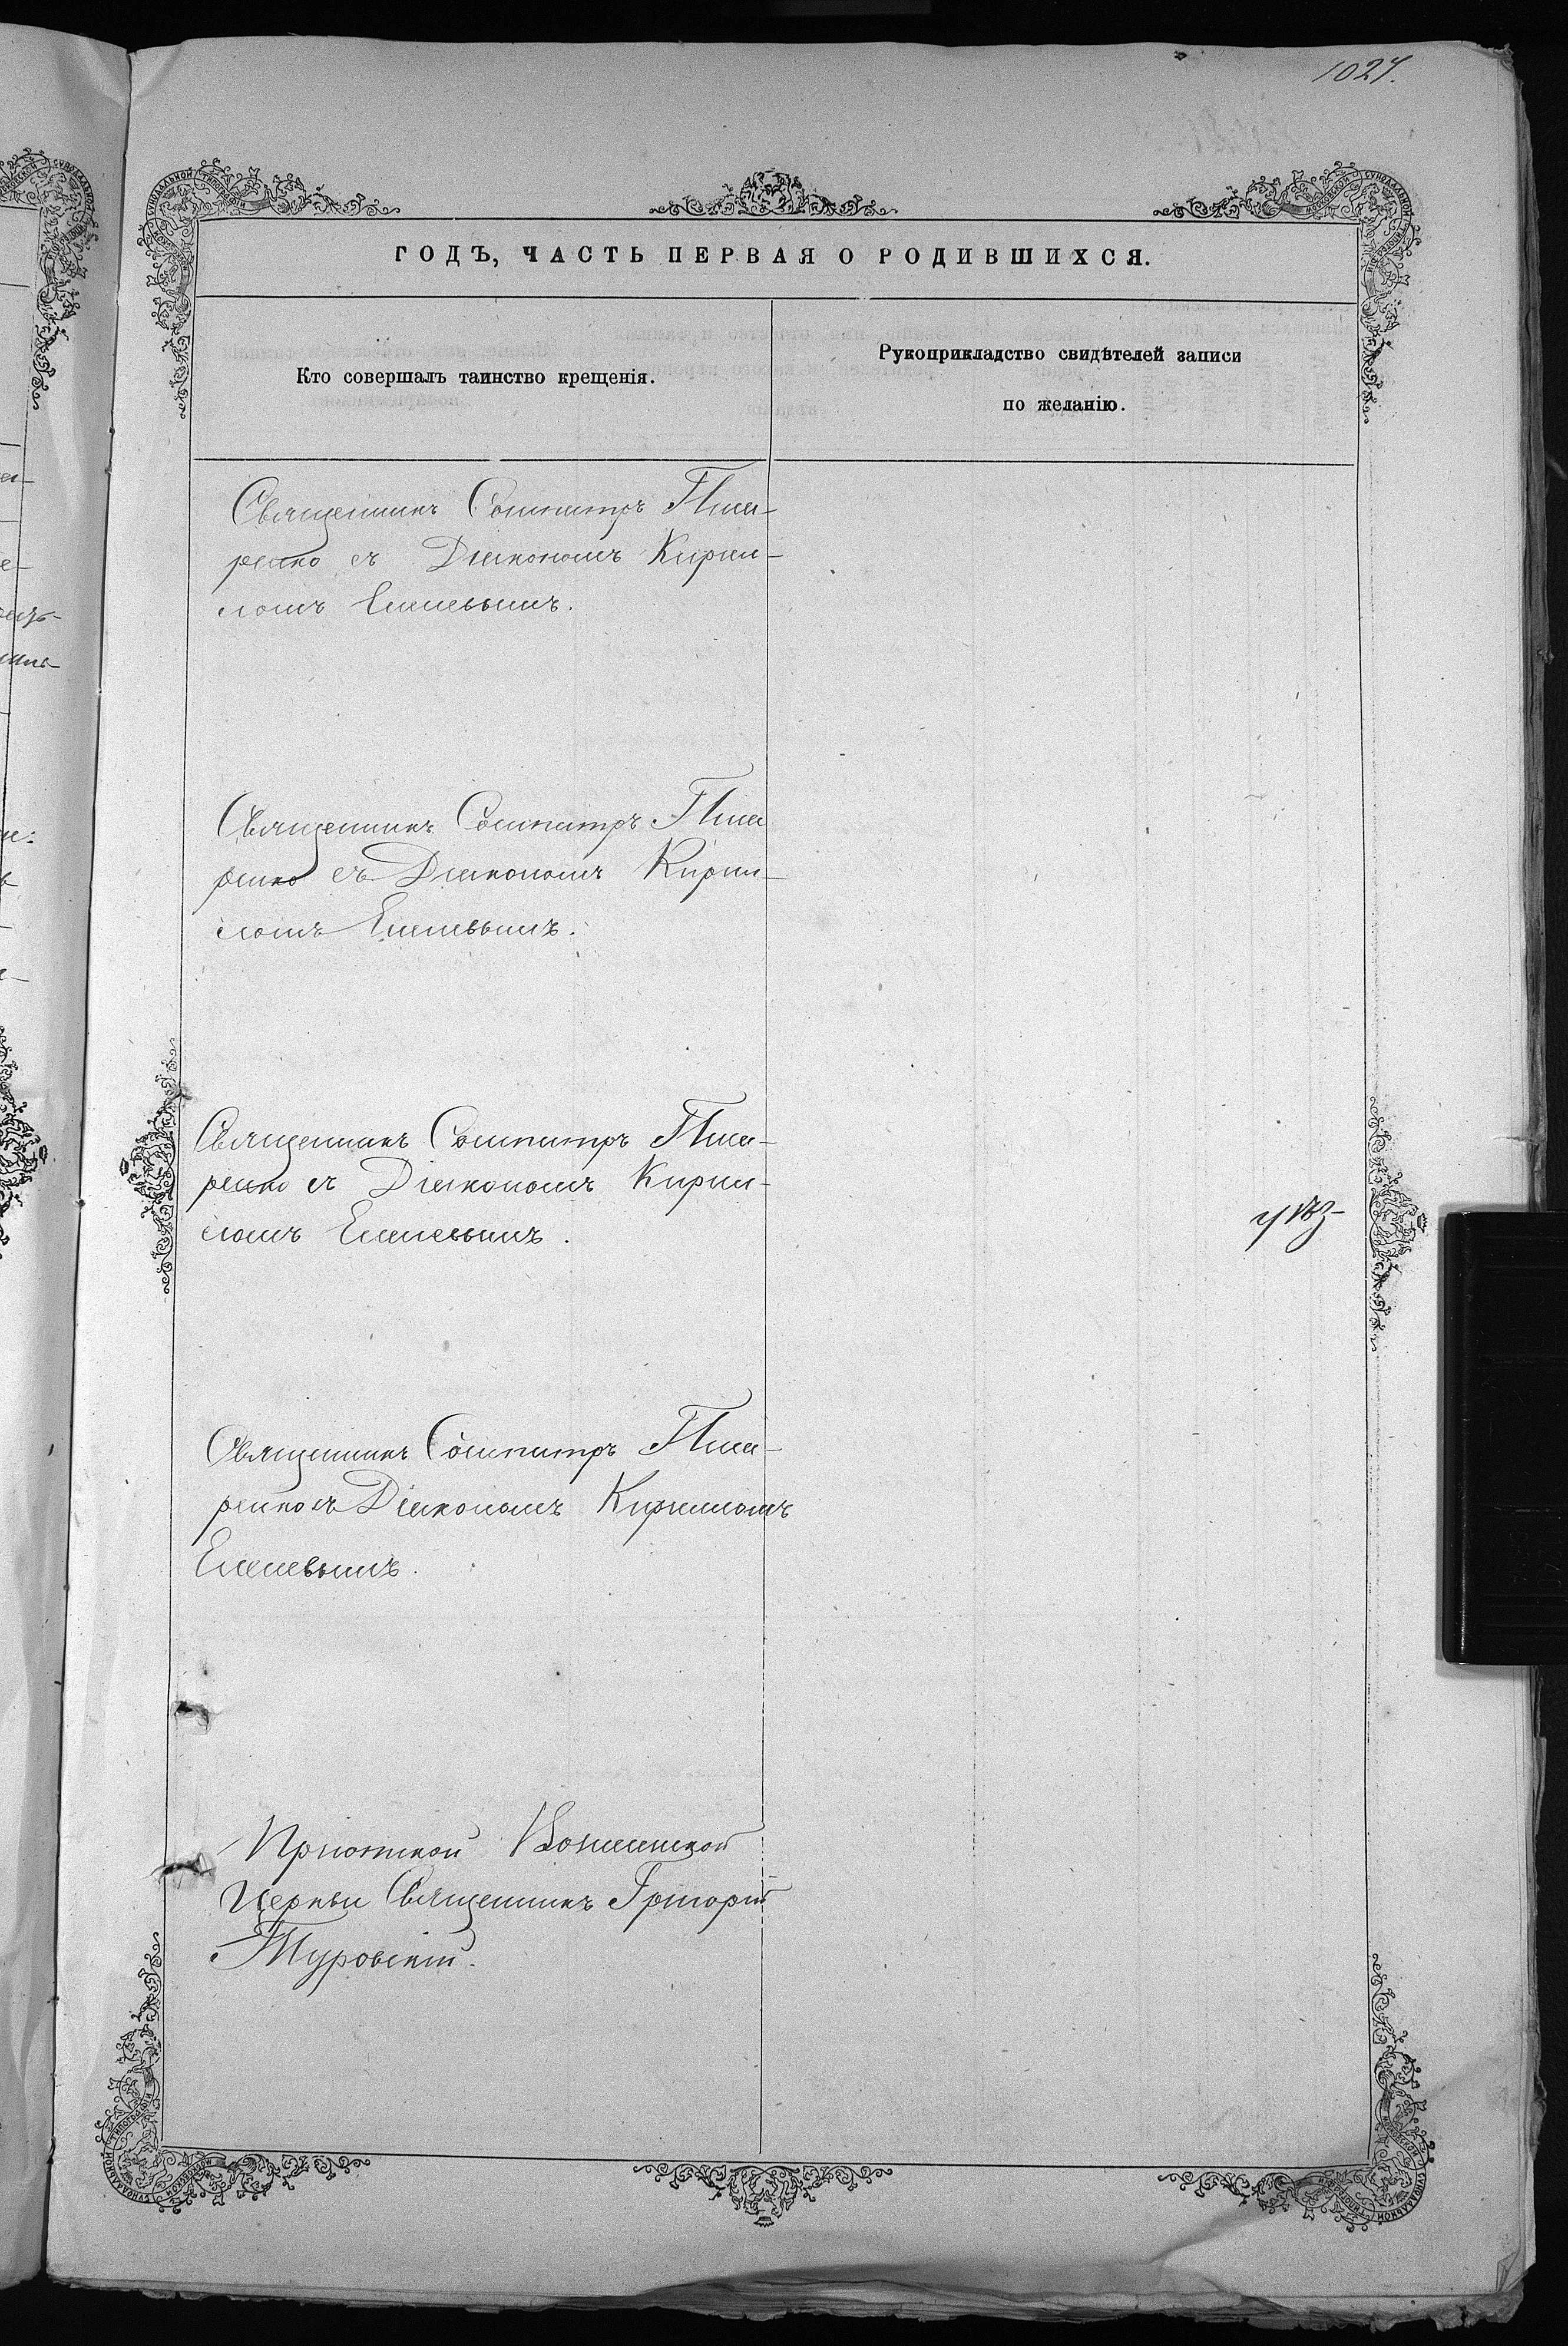 1027.
ГОДЪ, ЧАСТЬ ПЕРВАЯ О РОДИВШИХСЯ.
Кто совершалъ таинство крещенія.
Рукоприкладство свидѣтелей записи
по желанію.
Священникъ Сосипатръ Писа-
ренко съ Діакономъ Кирил-
ломъ Емелевымъ.
Священникъ Сосипатръ Писа
ренко съ Діакономъ Кирил-
ломъ Емелевымъ.
Священникъ Сосипатръ Писа-
ренко съ Діакономъ Кирил-
ломъ Емелевымъ.
Священникъ Сосипатръ Писа-
ренко съ Діакономъ Кирилломъ
Емелевымъ.
Пріютской
Церкви Священникъ Григорій
Туровскій.